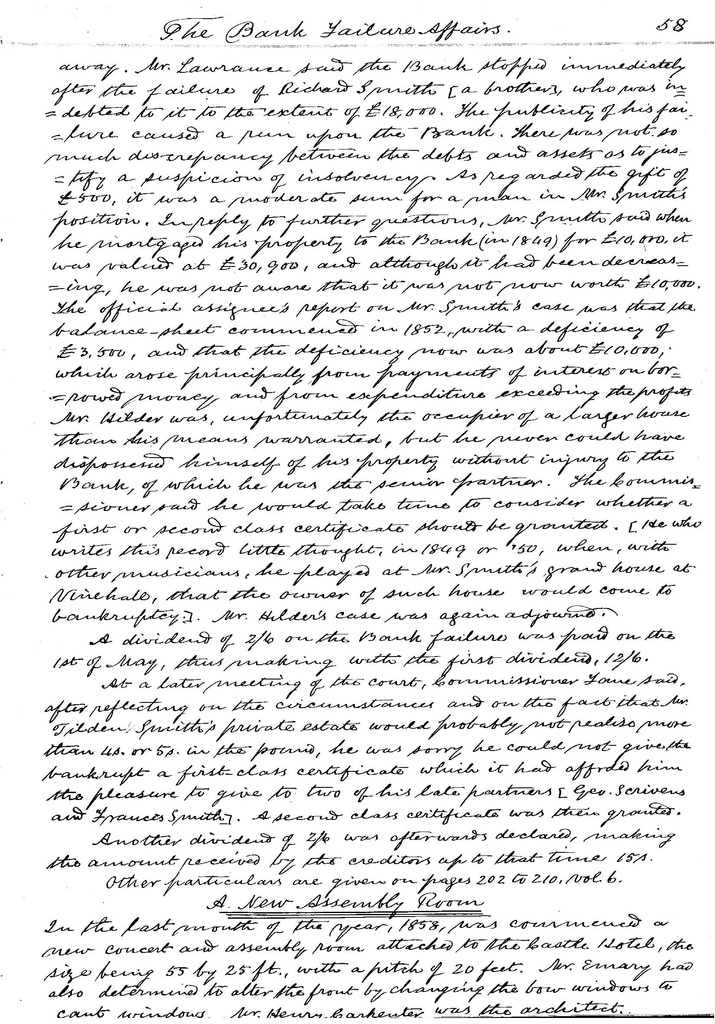 The Bank Failure Affairs. 58
away. Mr. Lawrance said the Bank stopped immediately
after the failure of Richard Smith [a brother], who was in=
=debted to it to the extent of £18,000. The publicity of his fai-
=lure caused a run upon the Bank. There was not so
much discrepancy between the debts and assets as to jus=
=tify a suspicion of insolvency. As regarded the gift of
£500, it was a moderate sum for a man in Mr. Smith's
position. In reply to further questions, Mr. Smith said when
he mortgaged his property to the Bank (in 1849) for £10,000, it
was valued at £30,900, and although it had been decreas=
=ing, he was not aware that it was not now worth £10,000.
The official assignee's report on Mr. Smith's case was that the
balance-sheet commenced in 1852, with a deficiency of
£3,500, and that the deficiency now was about £10,000;
which arose principally from payments of interest on bor=
=rowed money and from expenditure exceeding the profits
Mr. Hilder was, unfortunately the occupier of a larger house
than his means warranted, but he never could have
dispossessed himself of his property without injury to the
Bank, of which he was the senior partner. The Commis=
=sioner said he would take time to consider whether a
first or second class certificate should be granted. [He who
writes this record little thought, in 1849 or '50, when, with
other musicians, he played at Mr. Smith's grand house at
Vinehale, that the owner of such house would come to
bankruptcy]. Mr. Hilder's case was again adjourned.
A dividend of 2/6 on the Bank failure was paid on the
1st of May, thus making with the first dividend, 12/6.
At a later meeting of the court, Commissioner Fane said,
after reflecting on the circumstances and on the fact that Mr.
Tilden Smith's private estate would probably not realise more
than 4s. or 5s. in the pound, he was sorry he could not give the
bankrupt a first-class certificate which it had afforded him
the pleasure to give to two of his late partners [Geo. Scrivens
and Frances Smith]. A second class certificate was then granted.
Another dividend of 2/6 was afterwards declared, making
the amount received by the creditors up to that time 15s.
Other particulars are given on pages 202 to 210, vol. 6.
A New Assembly Room
In the last month of the year, 1858, was commenced a
new concert and assembly room attached to the Castle Hotel, the
size being 55 by 25 ft., with a pitch of 20 feet. Mr. Emary had
also determined to alter the front by changing the bow windows to
cant windows. Mr. Henry Carpenter was the architect.